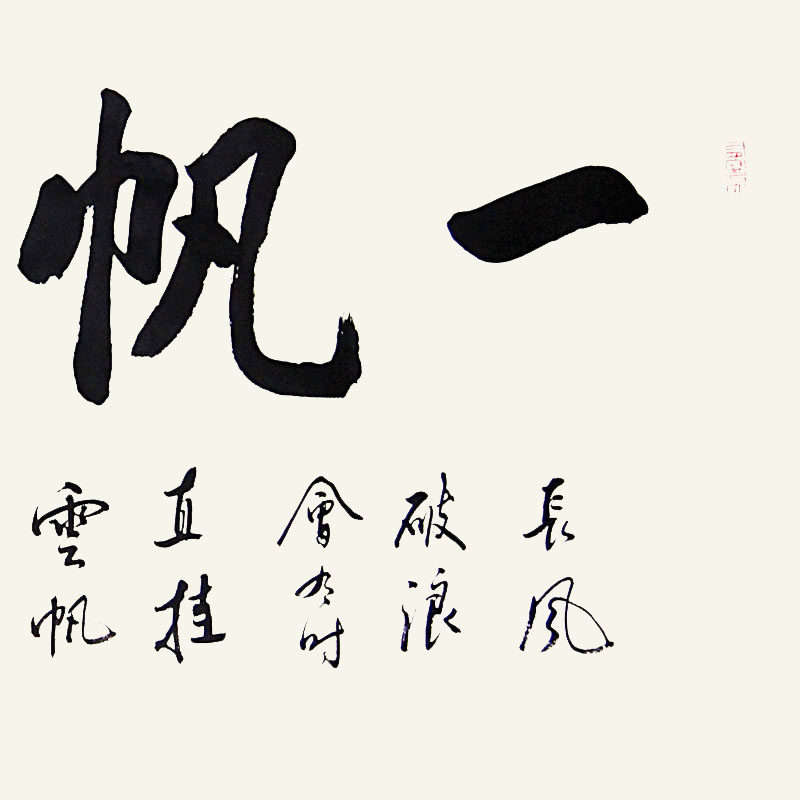 一帆
長風
破浪
會有时
直挂
雲帆